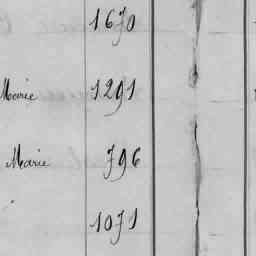 1670
Marie 1291
Marie 796
1071